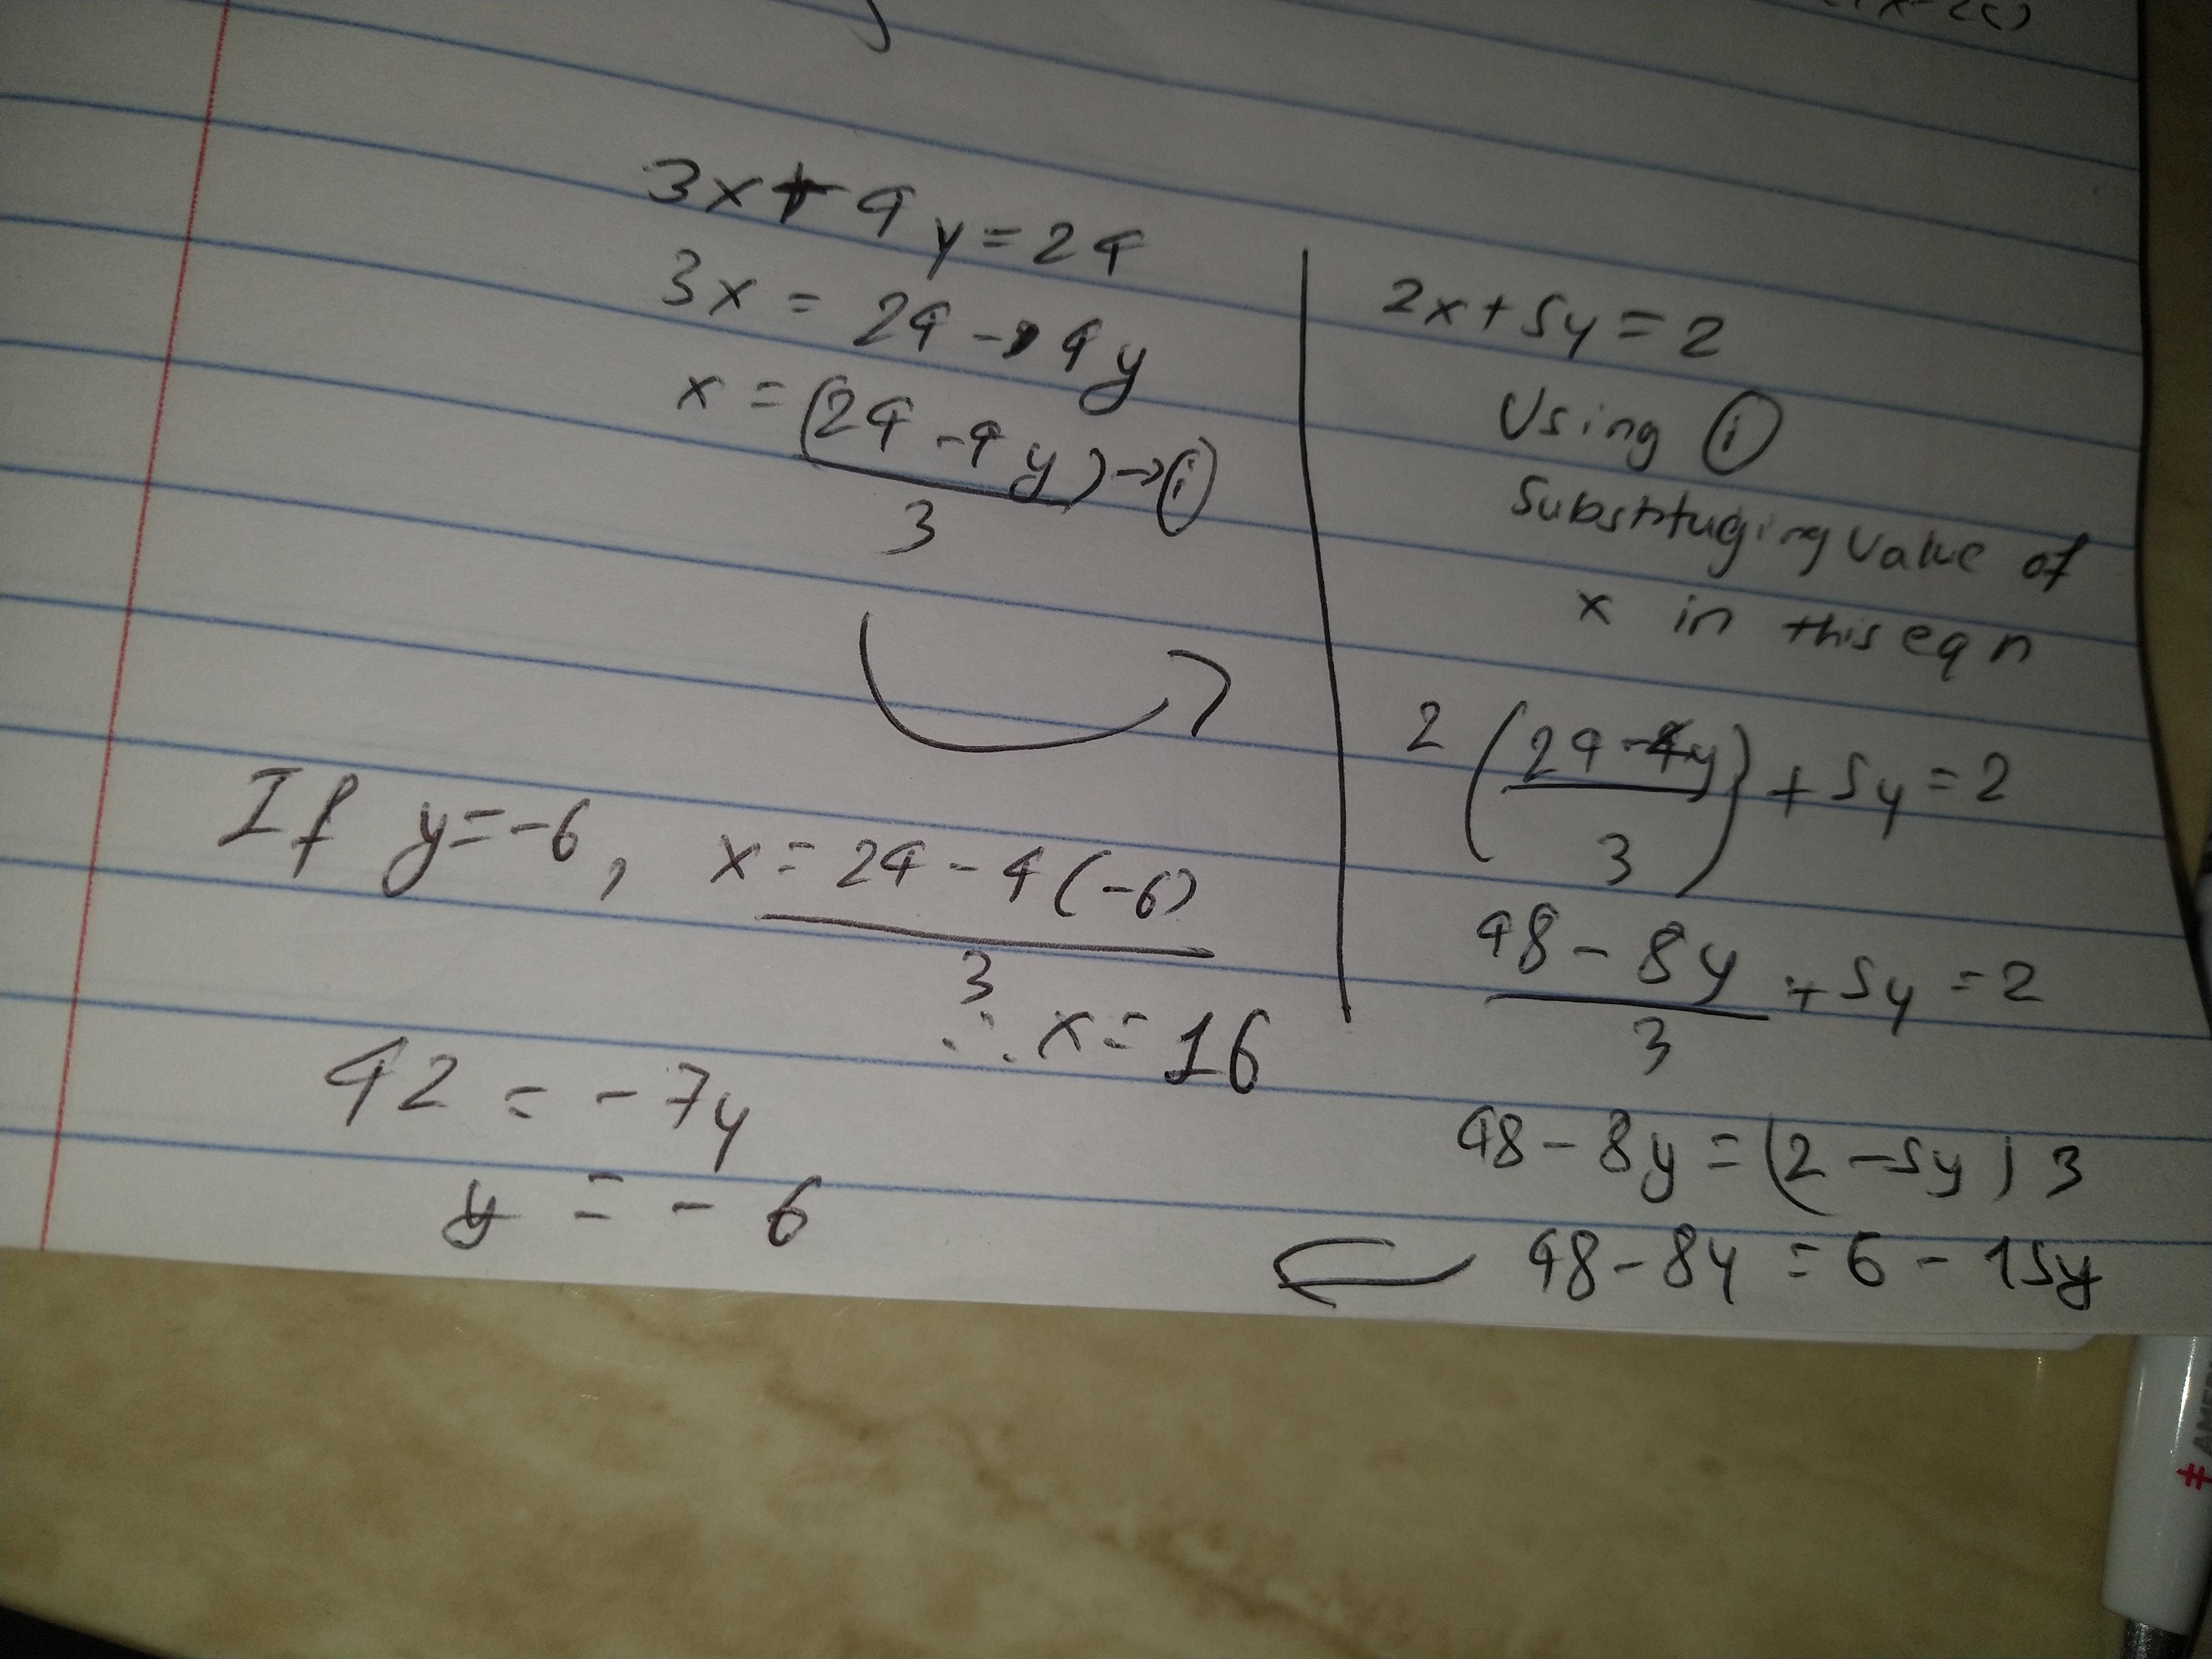 3x + 4y = 24
3x = 24 - 4y
x = (24 - 4y) → ⓘ
3
2x + 5y = 2
Using ⓘ
Substituging value of
x in this eqn
2 (24 - 4y) + 5y = 2
3
48 - 8y + 5y = 2
3
48 - 8y = (2 - 5y) 3
48 - 8y = 6 - 15y
42 = - 7y
y = - 6
If y = -6, x = 24 - 4(-6)
3
∴ x = 16